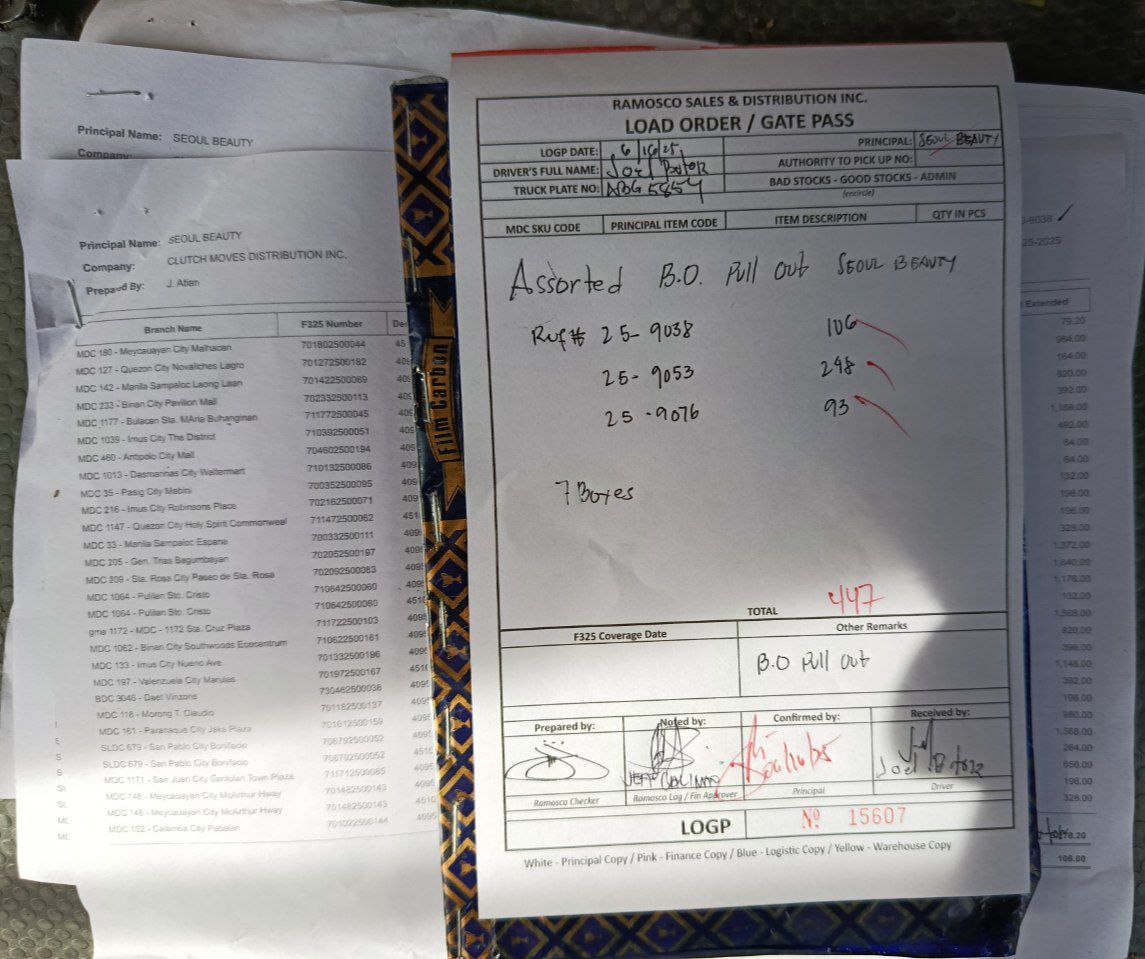 Principal Name: SEOUL BEAUTY
Company:
Principal Name: SEOUL BEAUTY
Company: CLUTCH MOVES DISTRIBUTION INC.
Prepared By: J. Atian
Branch Name F325 Number
MDC 180 - Meycauayan City Malhacan 701802500044 45
MDC 127 - Quezon City Novaliches Lagro 701272500182 409
MDC 142 - Manila Sampaloc Laong Laan 701422500069 409
MDC 233 - Binan City Pavilion Mall 702332500113 409
MDC 1177 - Bulacan Sta. MAria Buhanginan 711772500045 409
MDC 1039 - Imus City The District 710392500051 409
MDC 460 - Antipolo City Mall 704602500194 409
MDC 1013 - Dasmarinas City Waltermart 710132500086 409
MDC 35 - Pasig City Mabini 700352500095 409
MDC 216 - Imus City Robinsons Place 702162500071 409
MDC 1147 - Quezon City Holy Spirit Commonweal 711472500062 451
MDC 33 - Manila Sampaloc Espana 700332500111 409
MDC 205 - Gen. Trias Bagumbayan 702052500197 409
MDC 209 - Sta. Rosa City Paseo de Sta. Rosa 702092500083 409
MDC 1064 - Pulilan Sto. Cristo 710642500060 409
MDC 1064 - Pulilan Sto. Cristo 710642500060 4510
gma 1172 - MDC - 1172 Sta. Cruz Plaza 711722500103 409
MDC 1062 - Binan City Southwoods Ecocentrum 710622500161 409
MDC 133 - Imus City Nueno Ave. 701332500196 409
MDC 197 - Valenzuela City Marulas 701972500167 4510
BDC 3046 - Daet Vinzons 730462500038 409
MDC 118 - Morong T. Claudio 701182500137 409
MDC 161 - Paranaque City Jaka Plaza 701612500159 409
SLDC 679 - San Pablo City Bonifacio 706792500052 409
SLDC 679 - San Pablo City Bonifacio 706792500052 4510
MDC 1171 - San Juan City Santolan Town Plaza 711712500085 409
MDC 148 - Meycauayan City McArthur Hway 701482500143 409
MDC 148 - Meycauayan City McArthur Hway 701482500143 4510
MDC 102 - Calamba City Pabalan 701022500144 409
Film Carbon
RAMOSCO SALES & DISTRIBUTION INC.
LOAD ORDER / GATE PASS
LOGP DATE: 6/16/25 PRINCIPAL: SEOUL BEAUTY
DRIVER'S FULL NAME: Joel AUTHORITY TO PICK UP NO:
TRUCK PLATE NO: BAD STOCKS - GOOD STOCKS - ADMIN
(encircle)
MDC SKU CODE PRINCIPAL ITEM CODE ITEM DESCRIPTION QTY IN PCS
Assorted B.O. Pull Out SEOUL BEAUTY
Ref# 25-9038 106
25-9053 248
25-9076 93
7 Boxes
TOTAL 447
F325 Coverage Date Other Remarks
B.O Pull Out
Prepared by: Noted by: Confirmed by: Received by:
Ramosco Checker Ramosco Log / Fin Approver Principal Driver
LOGP Nº 15607
White - Principal Copy / Pink - Finance Copy / Blue - Logistic Copy / Yellow - Warehouse Copy
-9038
25-2025
Extended
79.20
984.00
164.00
820.00
392.00
1,188.00
492.00
64.00
64.00
132.00
196.00
196.00
328.00
1,372.00
1,640.00
1,176.00
132.00
1,568.00
820.00
396.00
1,148.00
392.00
196.00
980.00
1,568.00
264.00
656.00
196.00
328.00
8.20
106.00